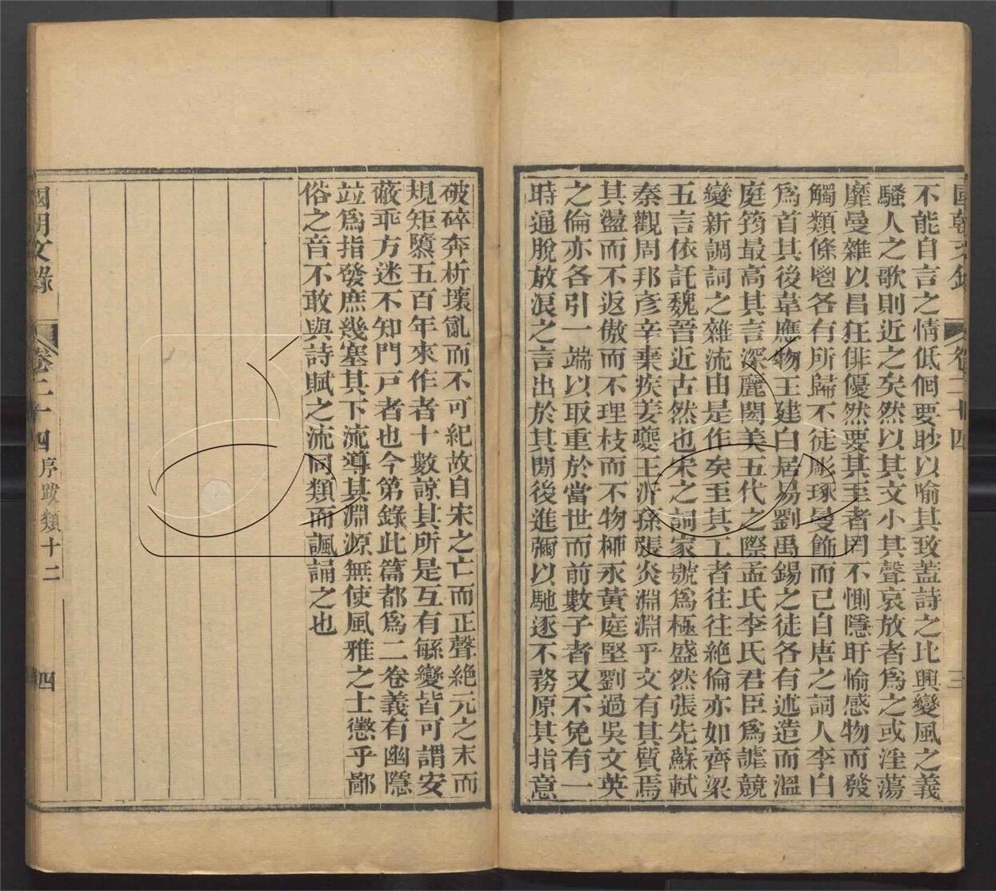 國朝文錄 卷二十四 三
不能自言之情低佪要眇以喻其致葢詩之比興變風之義
騷人之歌則近之矣然以其文小其聲哀放者爲之或淫蕩
靡曼雜以昌狂俳優然要其至者罔不惻隱盱愉感物而發
觸類條鬯各有所歸不徒彫琢曼飾而已自唐之詞人李白
爲首其後韋應物王建白居易劉禹錫之徒各有述造而溫
庭筠最高其言深麗閎美五代之際孟氏李氏君臣爲謔競
變新調詞之雜流由是作矣至其工者往往絕倫亦如齊梁
五言依託魏晉近古然也宋之詞家號爲極盛然張先蘇軾
秦觀周邦彥辛棄疾姜夔王沂孫張炎淵淵乎文有其質焉
其盪而不返傲而不理枝而不物桺永黃庭堅劉過吳文英
之倫亦各引一端以取重於當世而前數子者又不免有一
時通脫放浪之言出於其閒後進彌以馳逐不務原其指意
破碎奔析壞亂而不可紀故自宋之亡而正聲絕元之末而
規矩隳五百年來作者十數諒其所是互有繇變皆可謂安
蔽乖方迷不知門戸者也今第錄此篇都爲二卷義有幽隱
竝爲指發庶幾塞其下流導其淵源無使風雅之士懲乎鄙
俗之音不敢與詩賦之流同類而諷誦之也
國朝文錄 卷二十四 序跋類十二 四